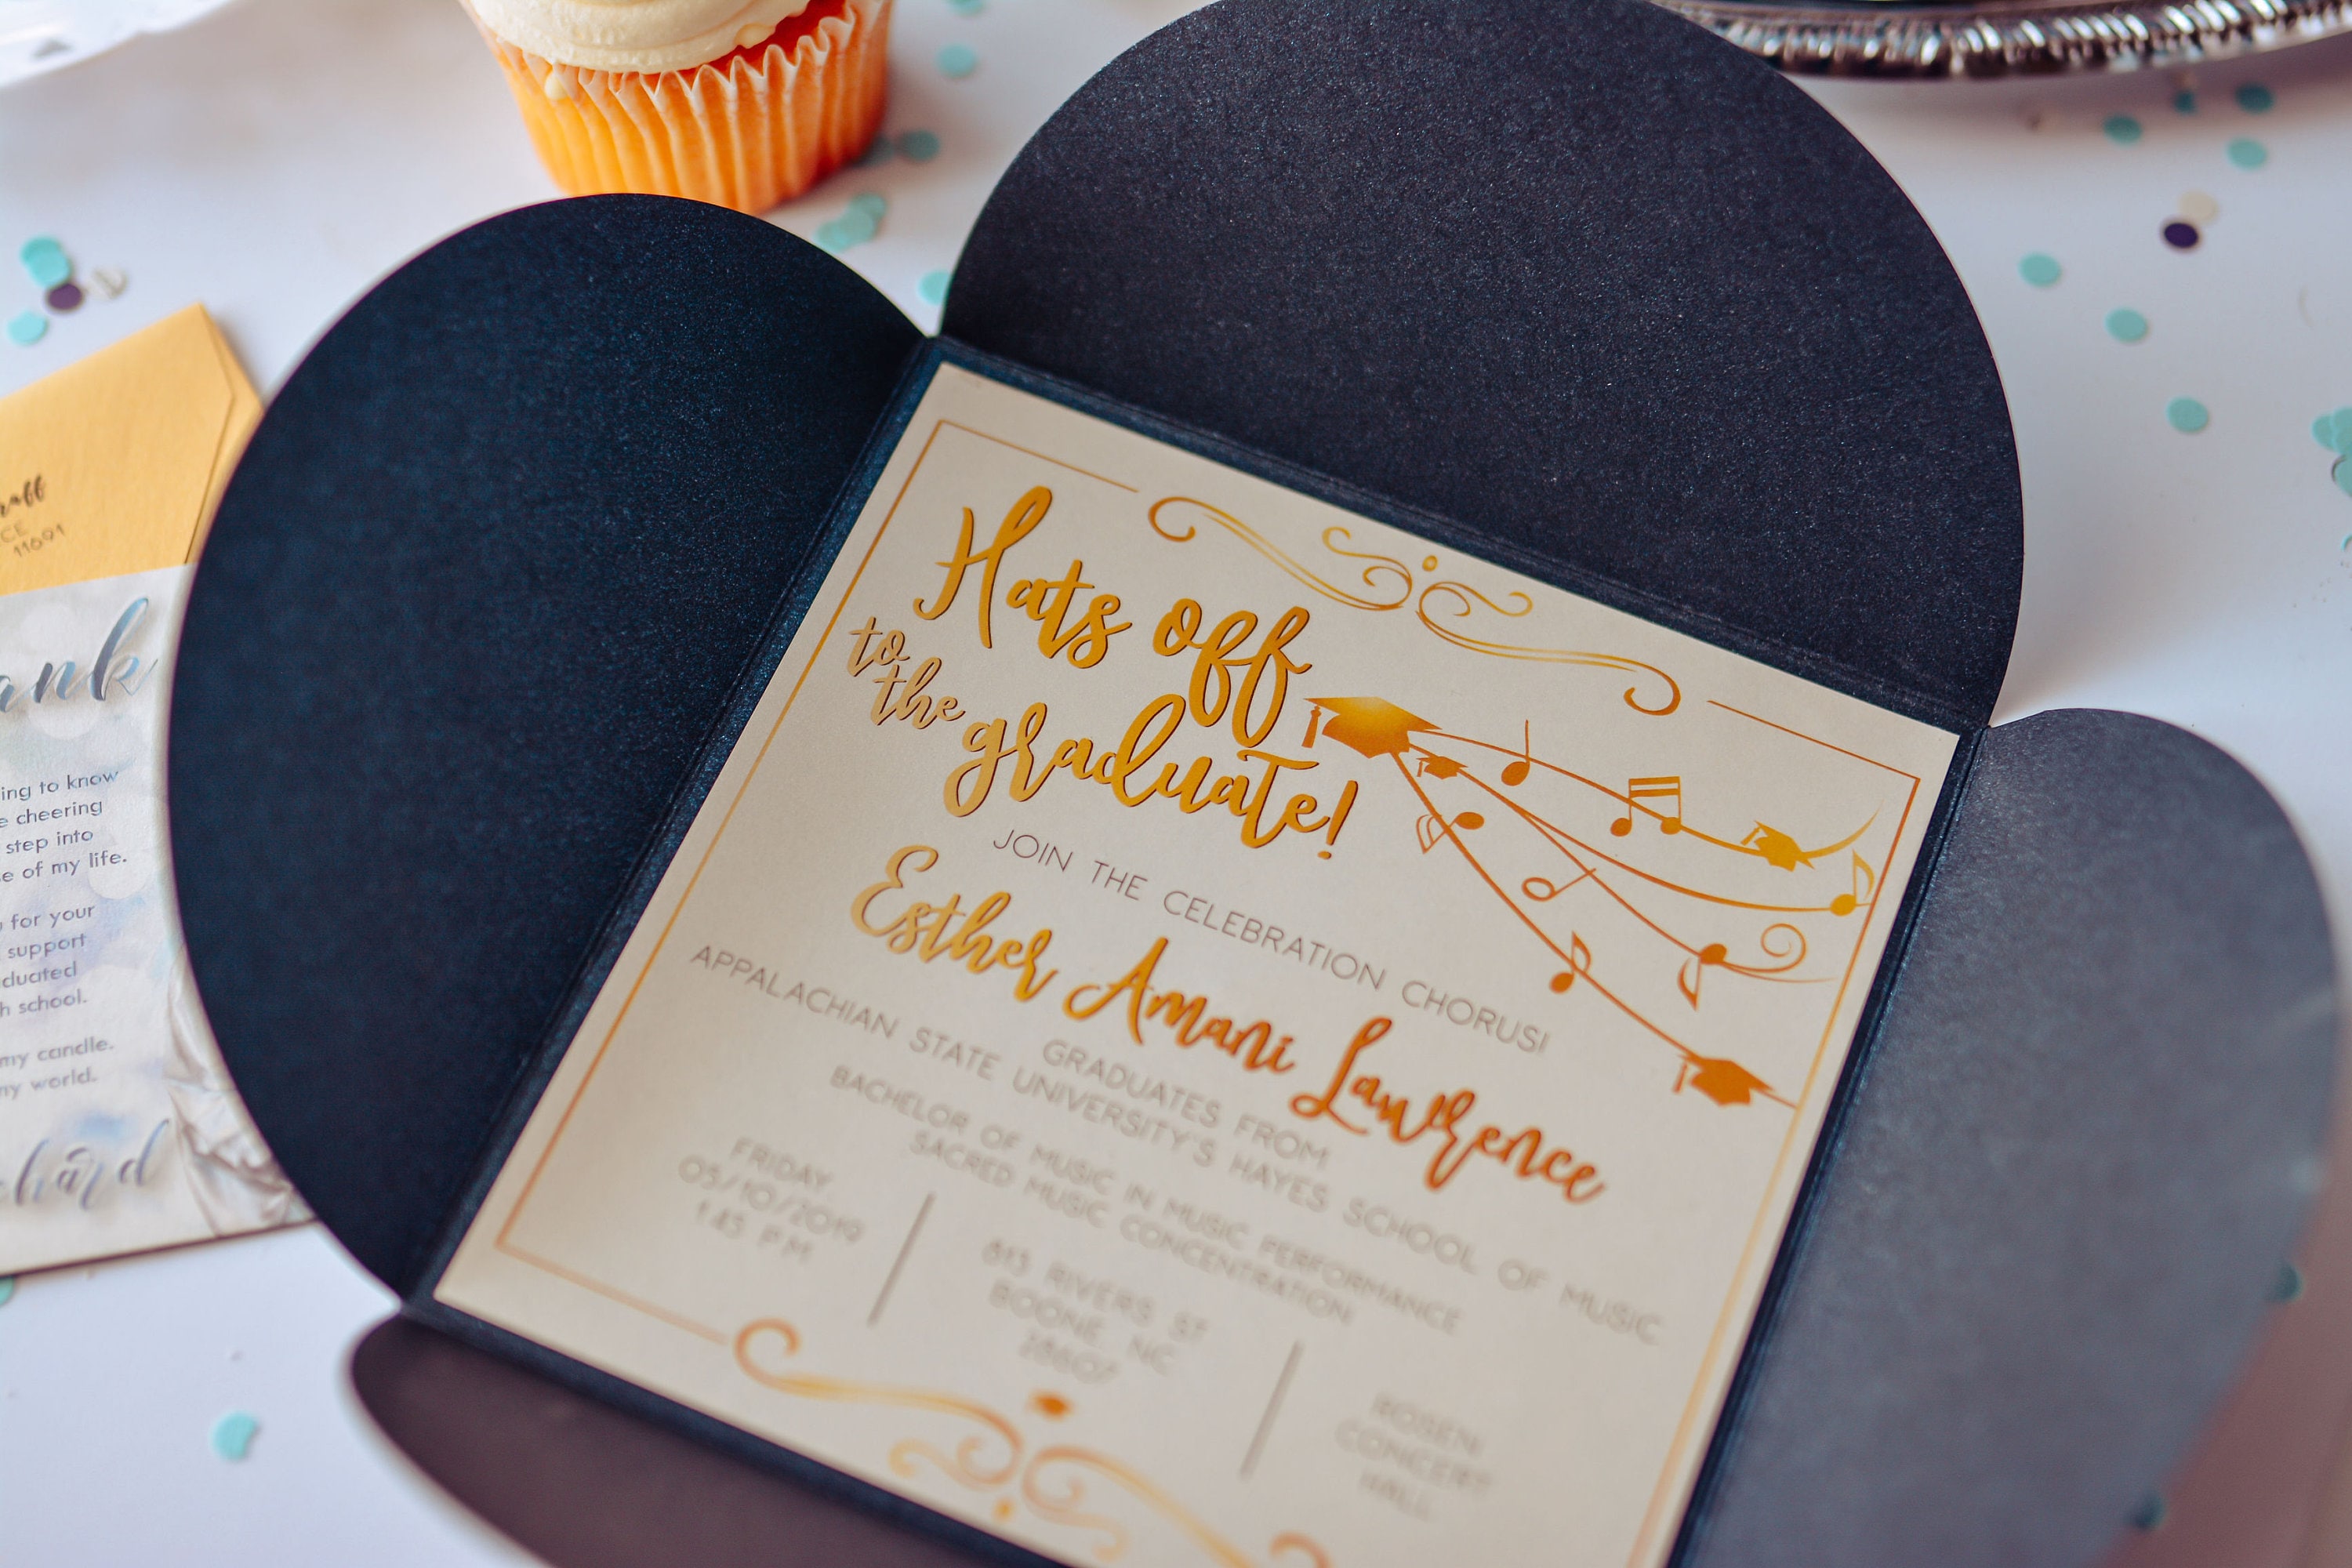 Hats off
to the
graduate!
JOIN THE CELEBRATION CHORUS!
Esther Amani Lawrence
GRADUATES FROM
APPALACHIAN STATE UNIVERSITY'S HAYES SCHOOL OF MUSIC
BACHELOR OF MUSIC IN MUSIC PERFORMANCE
SACRED MUSIC CONCENTRATION
FRIDAY
05/10/2019
1:45 PM
813 RIVERS ST
BOONE, NC
28607
ROSEN
CONCERT
HALL
11691
ank
ing to know
cheering
step into
e of my life.
for your
support
duated
h school.
my candle.
my world.
chard